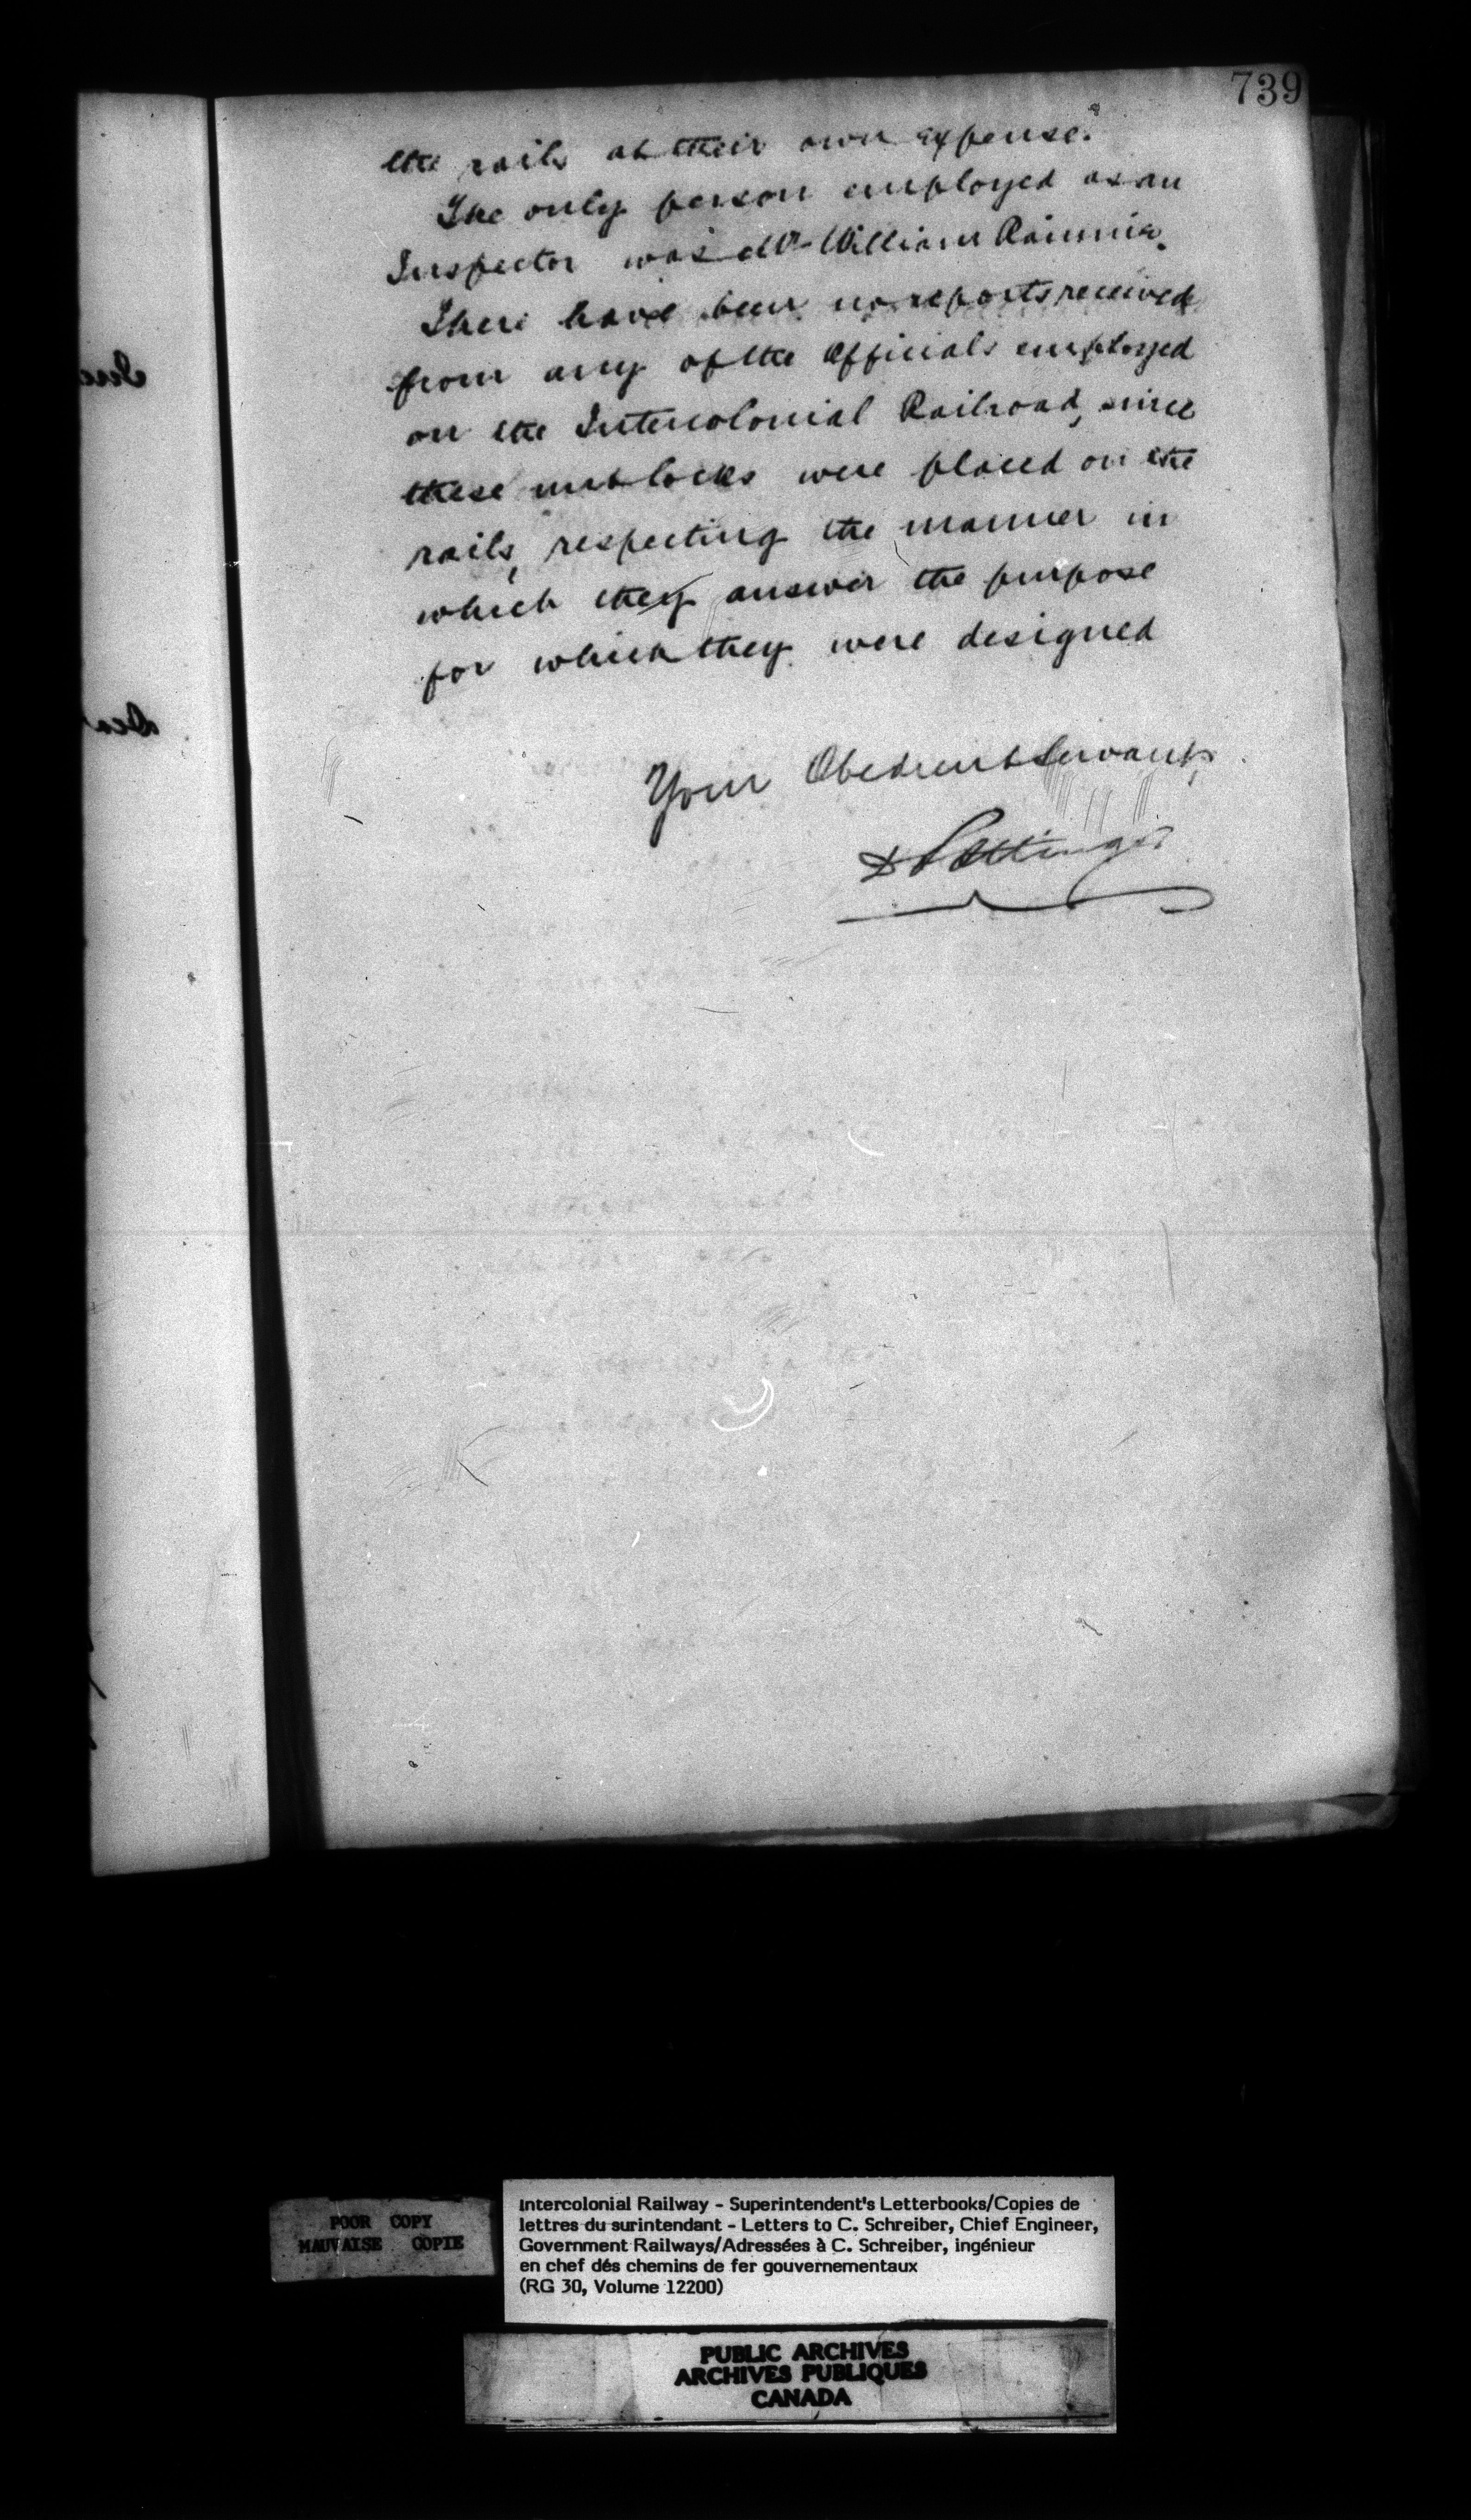 739
the rails at their own expense.
The only person employed as an
Inspector was Mr William Rainnie.
There have been no reports received
from any of the Officials employed
on the Intercolonial Railroad, since
these nutlocks were placed on the
rails, respecting the manner in
which they answer the purpose
for which they were designed
Your Obedient Servant,
D Pottinger
POOR COPY
MAUVAISE COPIE
Intercolonial Railway - Superintendent's Letterbooks/Copies de
lettres du surintendant - Letters to C. Schreiber, Chief Engineer,
Government Railways/Adressées à C. Schreiber, ingénieur
en chef dés chemins de fer gouvernementaux
(RG 30, Volume 12200)
PUBLIC ARCHIVES
ARCHIVES PUBLIQUES
CANADA